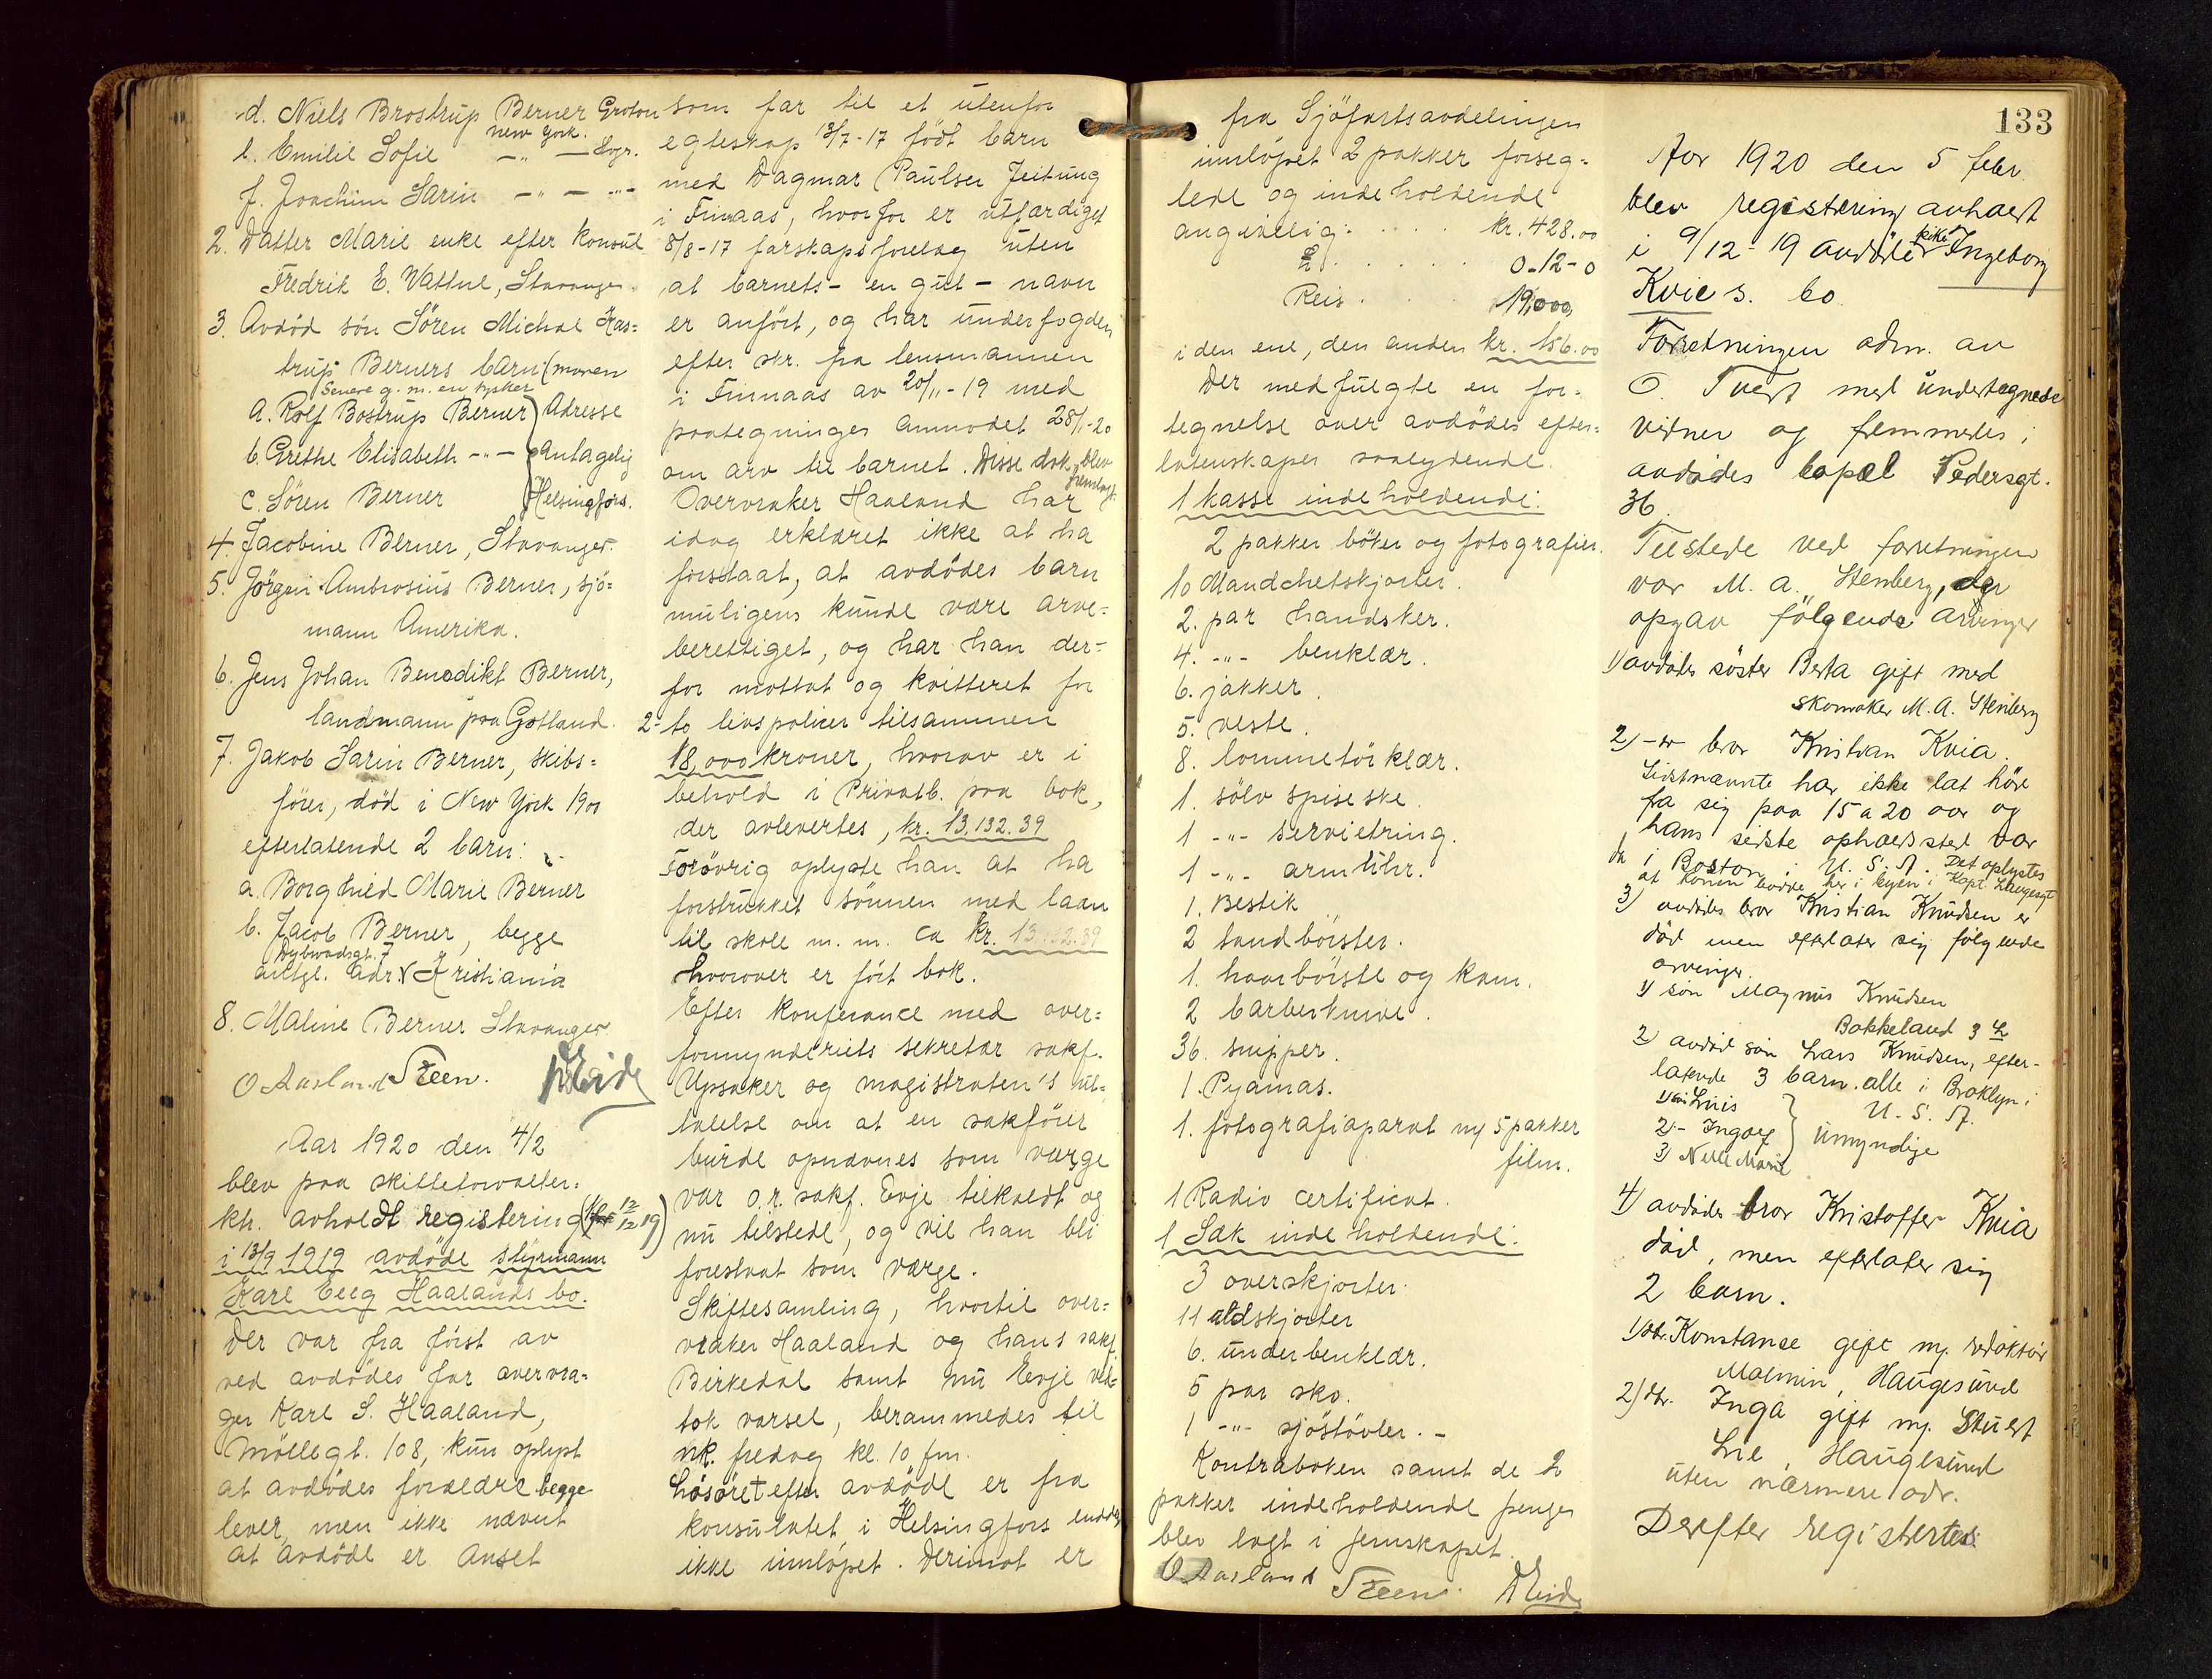 d. Niels Brostrup Berner Groton
New York.
e. Emilie Sofie -„- — Dogr.
f. Joachim Sarin -„- — -„-
2. Datter Marie enke efter konsul
Fredrik E. Vattne, Stavanger.
3. Avdöd sön Sören Michal Kas=
trup Berners barn (moren
senere g. m. en tysker
a. Rolf Bostrup Berner } Adresse
b. Grethe Elisabeth -„- } antagelig
c. Sören Berner } Helsingfors.
4. Jacobine Berner, Stavanger.
5. Jörgen Ambrosius Berner, sjö=
mann Amerika.
6. Jens Johan Benedikt Berner,
landmann paa Gotland.
7. Jakob Sarin Berner, skibs=
förer, död i New York 1901
efterlatende 2 barn:
a. Borghild Marie Berner
b. Jacob Berner, begge
Dybwadsgt. 7
antgl. adr. Kristiania
8. Maline Berner Stavanger.
O Aasland Steen. Eide
Aar 1920 den 4/2
blev paa skifteforvalter=
ktr. avholdt registering
i 13/9 1919 avdöde styrmann
Karl Eeg Haalands bo.
Der var fra först av
ved avdödes far overvra=
ger Karl S. Haaland,
Möllegt. 108, kun oplyst
at avdödes foreldre begge
lever, men ikke nævnt
at avdöde er anset
som far til et utenfor
egteskap 13/7-17 födt barn
med Dagmar Paulser Zeitung
i Finnaas, hvorfor er utfærdiget
8/8-17 farskapsforelæg uten
at barnets - en gut - navn
er anfört, og har underfogden
efter skr. fra lensmannen
i Finnaas av 20/11-19 med
paategninger anmodet 28/1-20
om arv til barnet. Disse dok. blev
fremlagt.
Overvraker Haaland har
idag erklæret ikke at ha
forstaat, at avdödes barn
muligens kunde være arve=
berettiget, og har han der=
for mottat og kvitteret for
2- to livspolicer tilsammen
18,000 kroner, hvorav er i
behold i Privatb. paa bok,
der avlevertes, kr. 13.132.39
Forövrig oplyste han at ha
forstrukket sönnen med laan
til skole m. m. ca kr. 13.132.39
hvorover er fört bok.
Efter konferance med over=
formynderiets sekretær sakf.
Upsaker og magistraten's ut=
talelse om at en sakförer
burde opnævnes som værge
var o.r. sakf. Evje tilkaldt og
nu tilstede, og vil han bli
foreslaat som værge.
Skiftesamling, hvortil over=
vraker Haaland og hans sakf.
Birkedal samt nu Evje ved-
tok varsel, berammedes til
nk. fredag kl. 10 fm.
Lösöret efter avdöde er fra
konsulatet i Helsingfors endda
ikke innlöpet. Derimot er
fra Sjöfartsavdelingen
innlöpet 2 pakker forseg=
lede og indeholdende
angivelig . . . . kr. 428.00
£ . . . . . . 0-12-0
Reis . . . . 19,000
i den ene, den anden kr. 156.00
Der medfulgte en for=
tegnelse over avdödes efter=
latenskaper saalydende.
1 kasse indeholdende:
2 pakker böker og fotografier.
10 Mandchetskjorter.
2. par handsker.
4. -„- benklær.
6. jakker.
5. veste.
8. lommetörklær.
1. sölv spiseske.
1 -„- servietring.
1 -„- armbuhr.
1. Bestik
2 tandbörster.
1. haarbörste og kam.
2 barberknive.
36. snipper.
1. Pyamas.
1. fotografiaparat m/ 5 pakker
film.
1 Radio certificat.
1 Sæk indeholdende:
3 overskjorter.
11 uldskjorter
6. underbenklær.
5 par sko.
1 -„- sjöstövler. -
Kontraboken samt de 2
pakker indeholdende penger
blev lagt i jernskapet.
O Aasland Steen. Eide
133
Aar 1920 den 5 febr.
blev registering avholdt
i 9/12-19 avdöde pike Ingeborg
Kvies bo.
Forretningen adm. av
O. Tvedt med undertegnede
vidner og fremmedes i
avdödes bopæl Pedersgt.
36.
Tilstede ved forretningen
var M. A. Stenberg, der
opgav fölgende arvinger
1) avdödes söster Berta gift med
skomaker M. A. Stenberg
2) -„- bror Kristian Kvia.
Sidstnævnte har ikke lat höre
fra sig paa 15 a 20 aar og
hans sidste opholdssted var
da i Boston i U. S. A. Det oplystes
at konen bodde her i byen i Kapt. Langesgt
3) avdödes bror Kristian Knudsen er
död men efterlater sig fölgende
arvinger.
1) sön Magnus Knudsen
Bakkeland 3
2) avdöd sön Lars Knudsen, efter-
latende 3 barn. alle i Broklyn i
U. S. A.
1) sön Luis }
2) - Ingolf } umyndige
3) Nelle Marie
4) avdödes bror Kristoffer Kvia
död, men efterlater sig
2 barn.
1) dtr. Konstanse gift m/ redaktör
Malmin, Haugesund
2) dtr. Inga gift m/ Stuert
Lie, Haugesund
uten nærmere adr.
Derefter registertes: